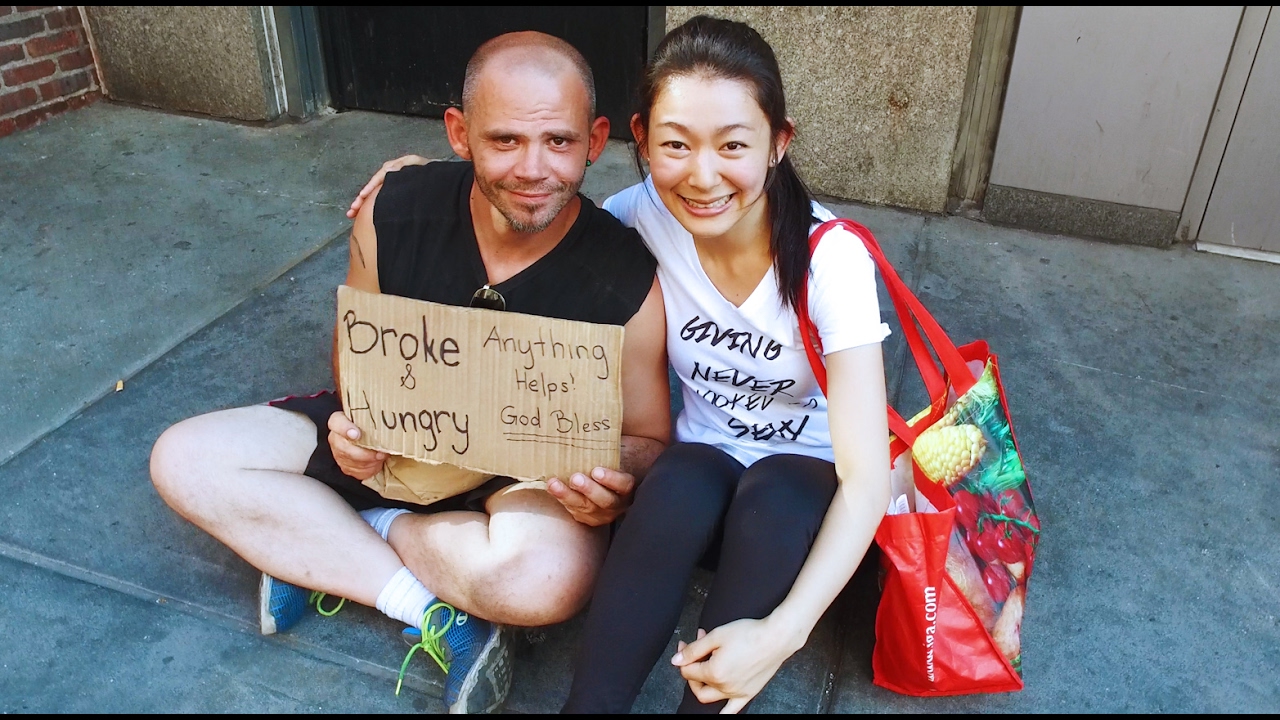 Broke
&
Hungry
Anything
Helps!
God Bless
GIVING
NEVER
LOOKED SO
www.iga.com